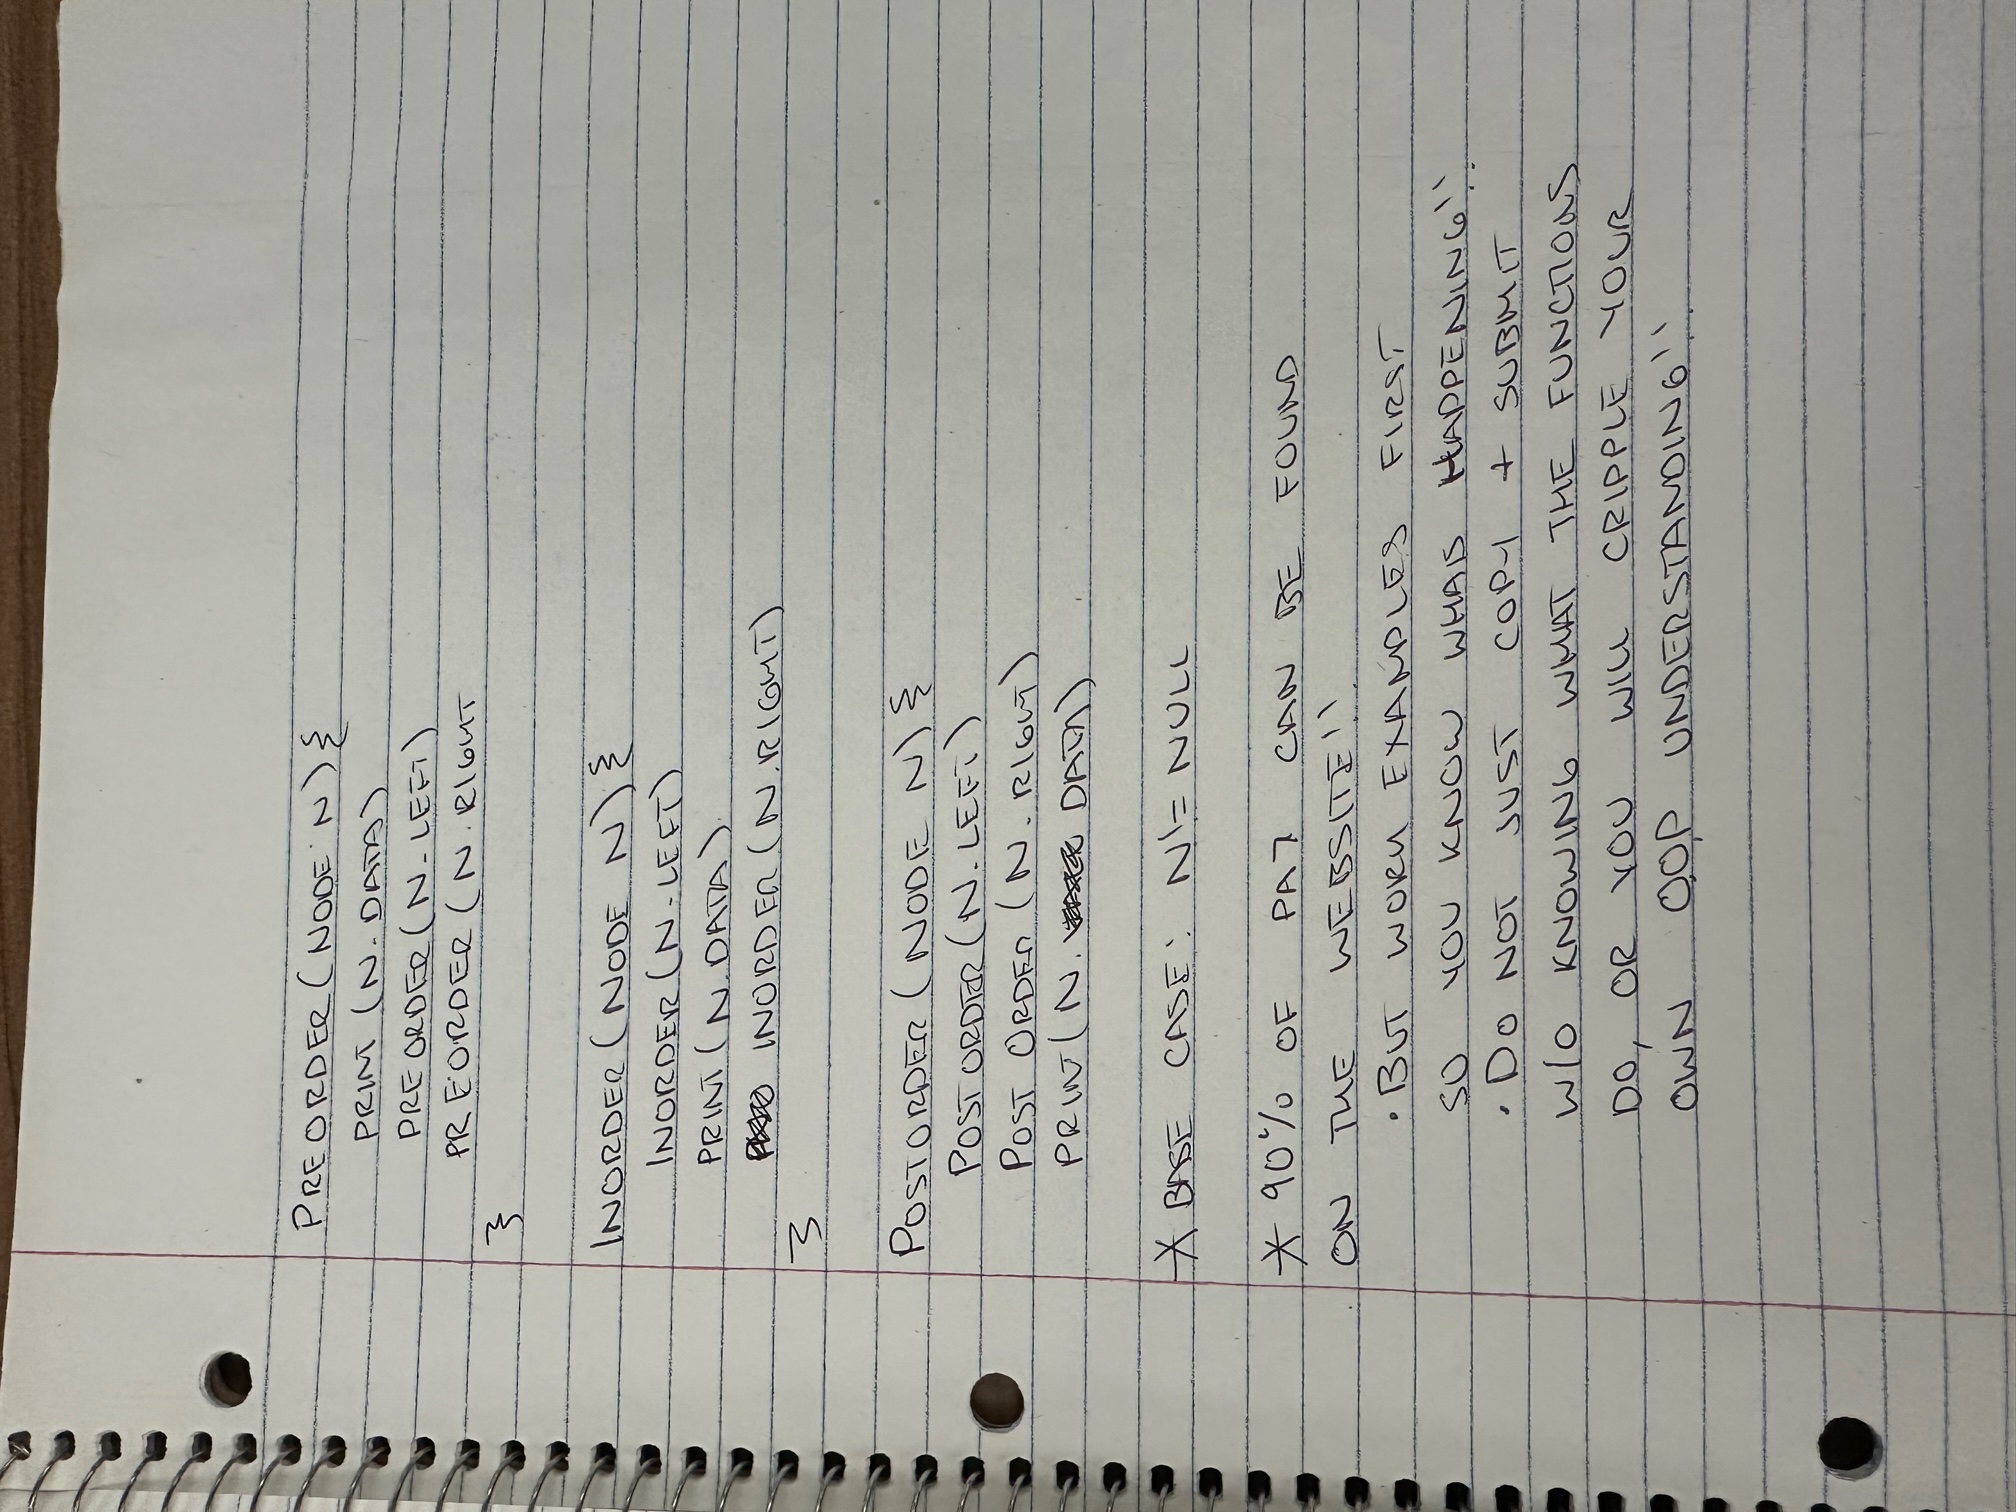 PREORDER(NODE N){
PRINT (N.DATA)
PREORDER(N.LEFT)
PREORDER(N.RIGHT
}
INORDER(NODE N){
INORDER(N.LEFT)
PRINT(N.DATA)
INORDER(N.RIGHT)
}
POSTORDER(NODE N){
POSTORDER(N.LEFT)
POST ORDER(N.RIGHT)
PRINT(N. DATA)
* BASE CASE: N!= NULL
* 90% OF PA7 CAN BE FOUND
ON THE WEBSITE!!
• BUT WORK EXAMPLES FIRST
SO YOU KNOW WHATS HAPPENING!!
• DO NOT JUST COPY + SUBMIT
W/O KNOWING WHAT THE FUNCTIONS
DO, OR YOU WILL CRIPPLE YOUR
OWN OOP UNDERSTANDING!!